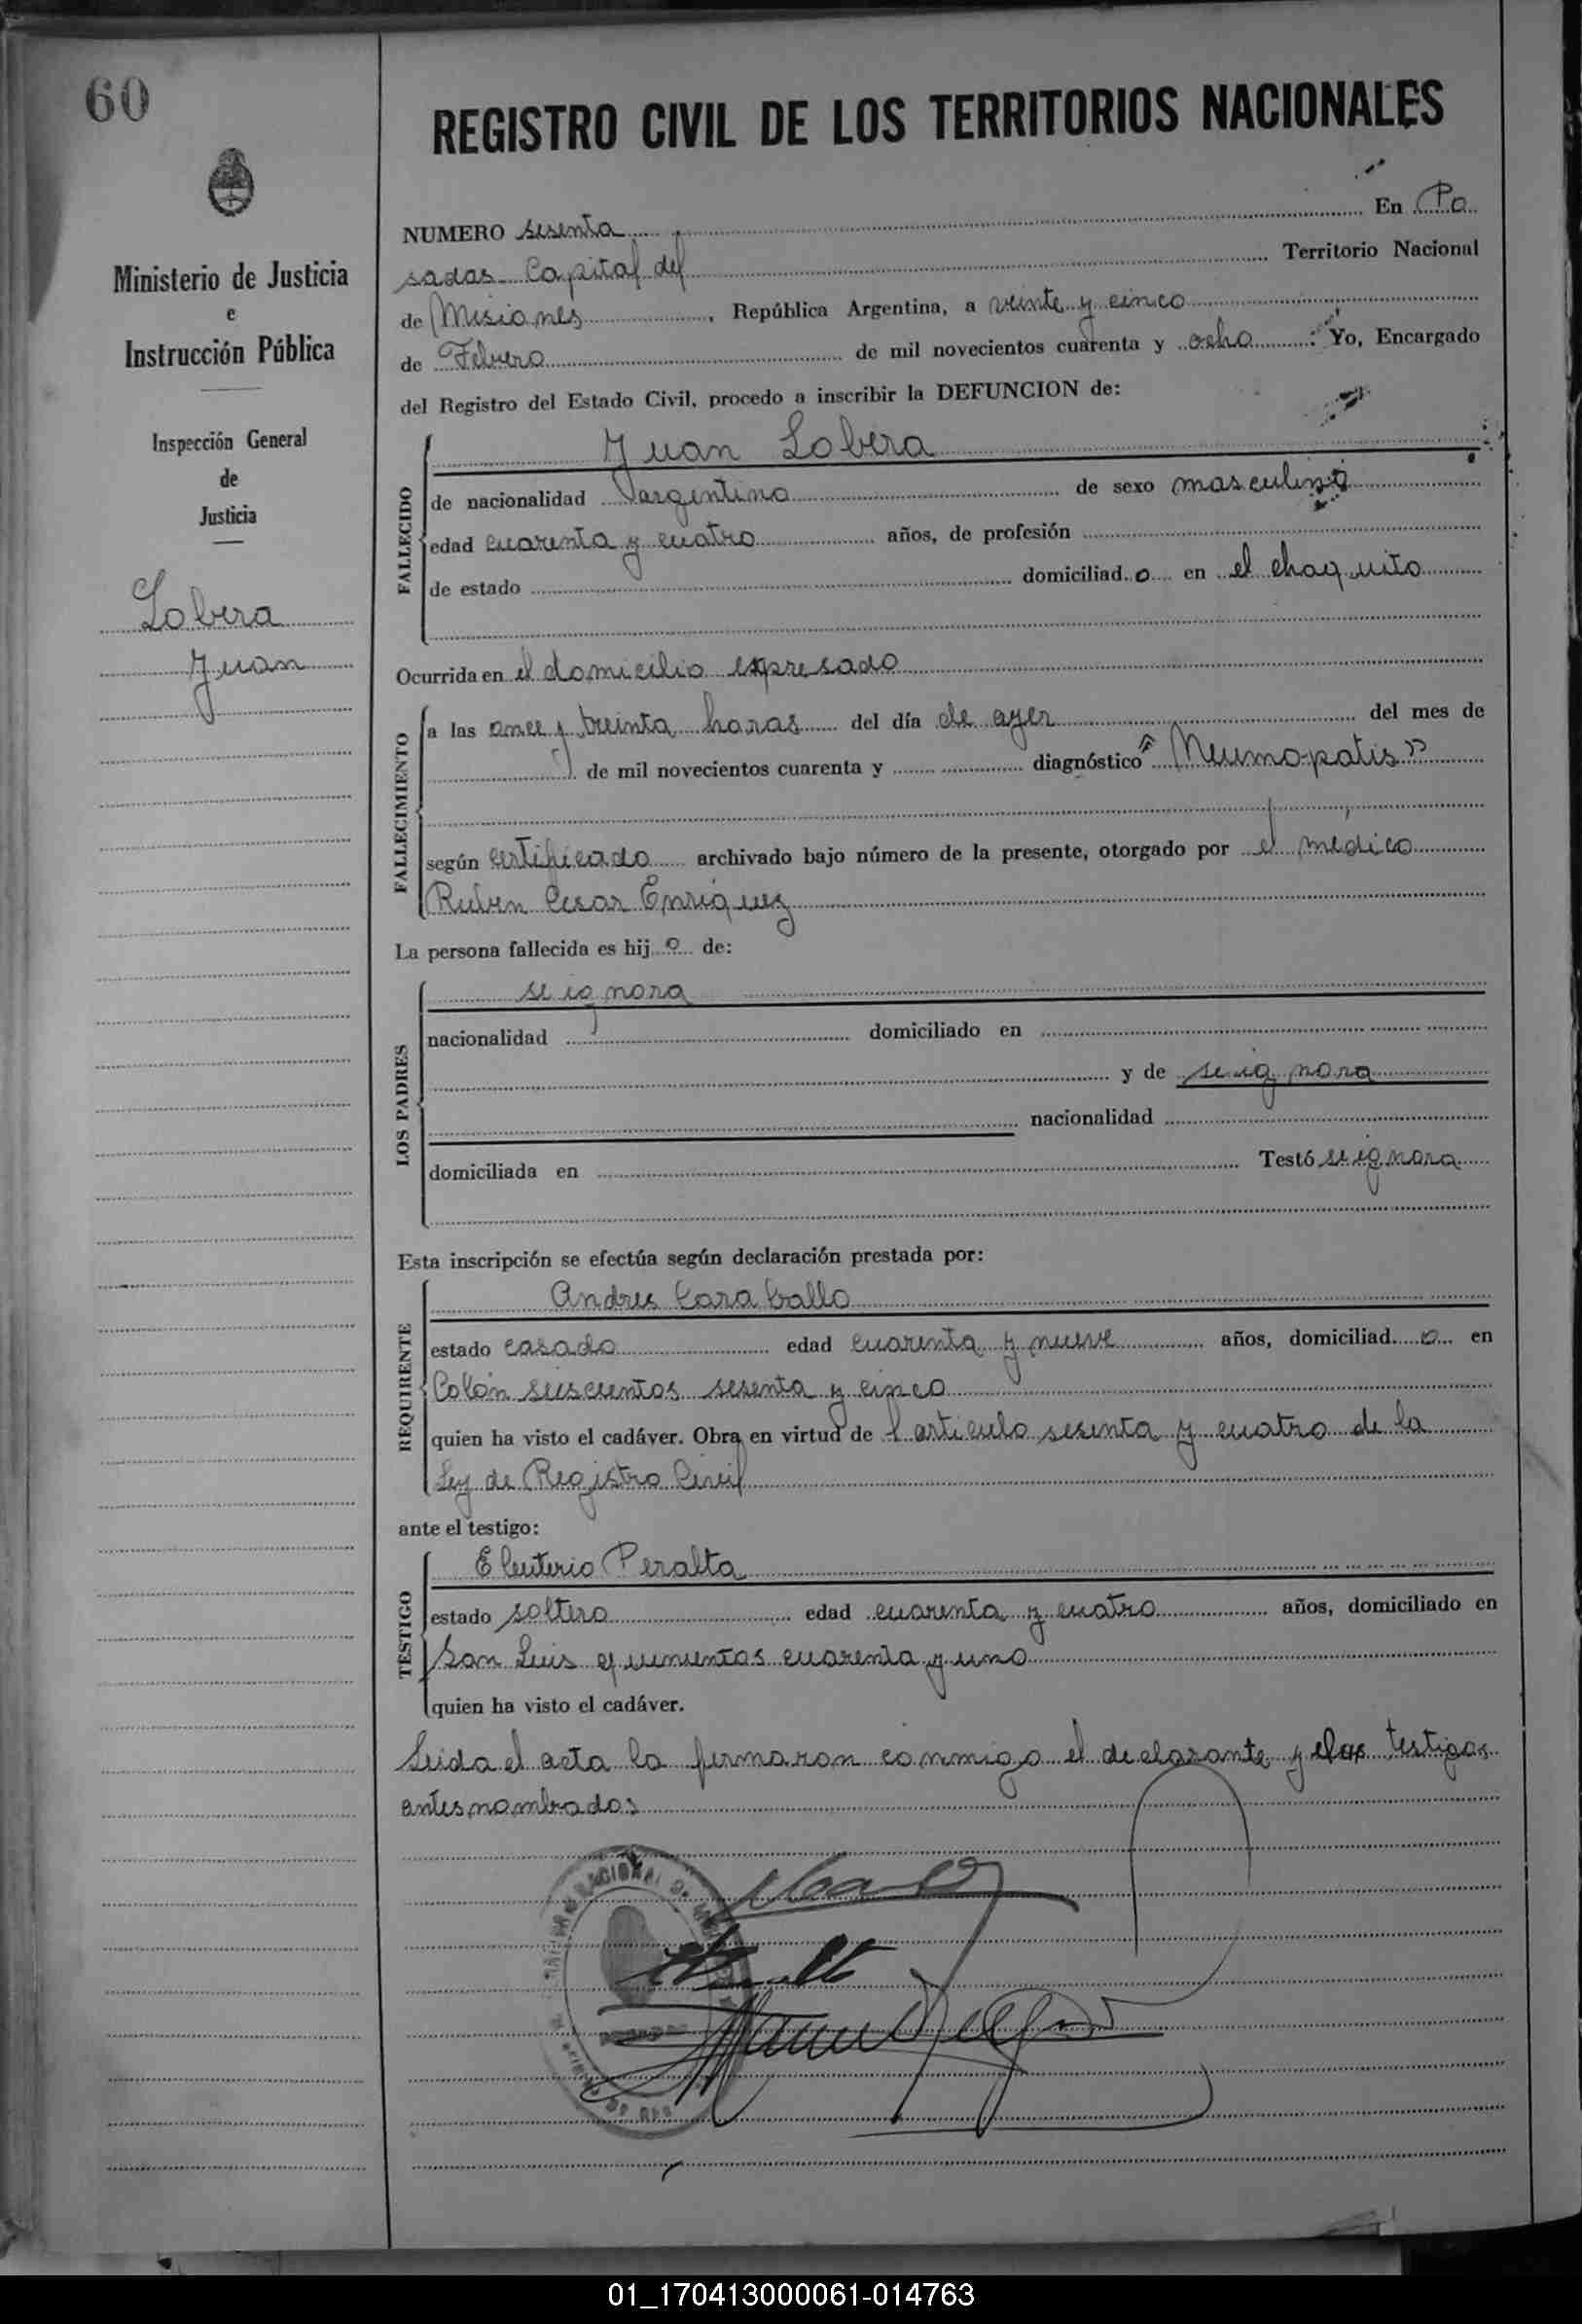 60
REGISTRO CIVIL DE LOS TERRITORIOS NACIONALES
Ministerio de Justicia
e
Instrucción Pública
Inspección General
de
Justicia
Lobera
Juan
NUMERO sesenta En Po
sadas Capital del Territorio Nacional
de Misiones, República Argentina, a veinte y cinco
de Febrero de mil novecientos cuarenta y ocho: Yo, Encargado
del Registro del Estado Civil, procedo a inscribir la DEFUNCION de:
FALLECIDO
Juan Lobera
de nacionalidad argentino de sexo masculino
edad cuarenta y cuatro años, de profesión
de estado domiciliad o en el chaquito
Ocurrida en el domicilio expresado
FALLECIMIENTO
a las once y treinta horas del día de ayer del mes de
de mil novecientos cuarenta y diagnóstico "Neumopatis"
según certificado archivado bajo número de la presente, otorgado por el médico
Ruben Cesar Enriquez
La persona fallecida es hij o de:
LOS PADRES
se ignora
nacionalidad domiciliado en
y de se ignora
nacionalidad
domiciliada en Testó se ignora
Esta inscripción se efectúa según declaración prestada por:
REQUIRENTE
Andres Caraballo
estado casado edad cuarenta y nueve años, domiciliad o en
Colón seiscientos sesenta y cinco
quien ha visto el cadáver. Obra en virtud de l articulo sesenta y cuatro de la
Ley de Registro Civil
ante el testigo:
TESTIGO
Eleuterio Peralta
estado soltero edad cuarenta y cuatro años, domiciliado en
San Luis quinientos cuarenta y uno
quien ha visto el cadáver.
Leida el acta la firmaron conmigo el declarante y los testigos
antes nombrados
01_170413000061-014763